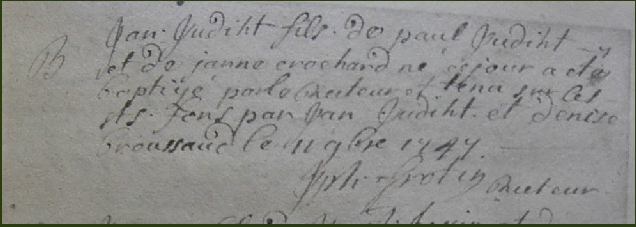 B
jan judiht fils de paul judiht
et de janne crochard né cejour a eté
baptizé parle Recteur et tenu sur les
sts fons par jan judiht et denise
broussaud le 11 9bre 1747
jph Grotin Recteur